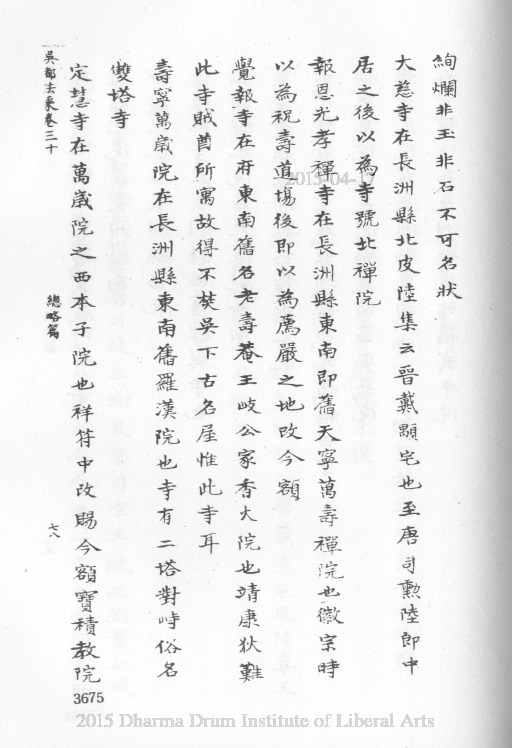 絢爛非玉非石不可名狀
大慈寺在長洲縣北皮陸集云晉戴顒宅也至唐司勲陸郎中
居之後以為寺號北禪院
報恩光孝禪寺在長洲縣東南即舊天寧萬壽禪院也徽宗時
以為祝壽道場後即以為薦嚴之地改今額
覺報寺在府東南舊名老壽菴王岐公家香火院也靖康狄難
此寺賊酋所寓故得不焚吳下古名屋惟此寺耳
壽寧萬歲院在長洲縣東南舊羅漢院也寺有二塔對峙俗名
雙塔寺
定慧寺在萬歲院之西本子院也祥符中改賜今額寶積教院
吳都法乘卷三十
總略篇
七八
3675
2015-04-17
2015 Dharma Drum Institute of Liberal Arts